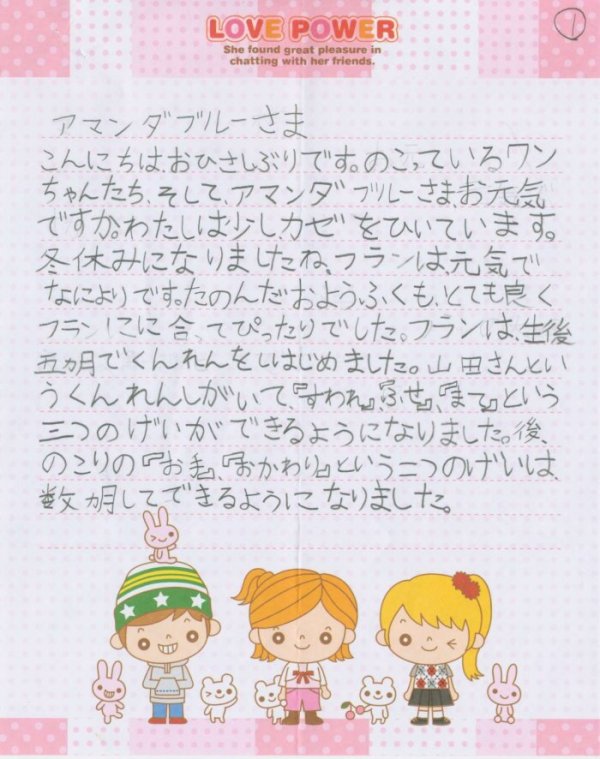 LOVE POWER
She found great pleasure in
chatting with her friends.
1
アマンダブルーさま
こんにちは、おひさしぶりです。のこっているワン
ちゃんたち、そして、アマンダブルーさまお元気
ですか。わたしは少しカゼをひいています。
冬休みになりましたね、フランは、元気で
なによりです。たのんだおようふくも、とても良く
フランにに合ってぴったりでした。フランは、生後
五ヵ月でくんれんをはじめました。山田さんとい
うくんれんしがいて、『すわれ』、『ふせ』、『まて』という
三つのげいができるようになりました。後、
のこりの『お手』、『おかわり』という二つのげいは、
数ヵ月してできるようになりました。